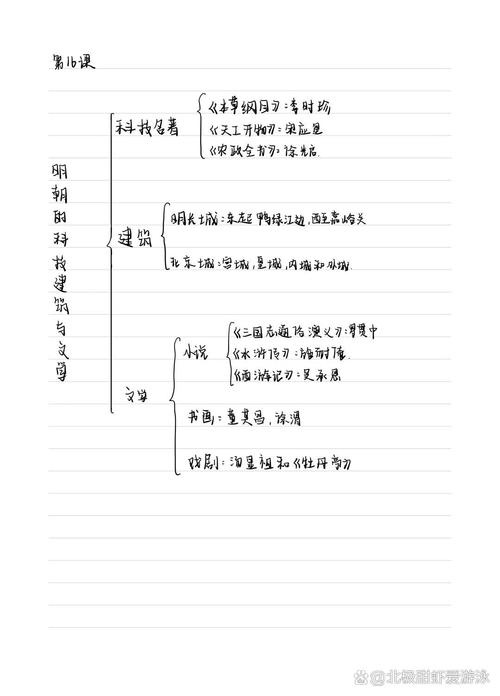 第16课
明朝的科技建筑与文学
科技名著
《本草纲目》:李时珍
《天工开物》:宋应星
《农政全书》:徐光启.
建筑
明长城:东起鸭绿江边,西至嘉峪关
北京城:宫城,皇城,内城和外城.
文学
小说
《三国志通俗演义》:罗贯中
《水浒传》:施耐庵.
《西游记》:吴承恩
书画:董其昌,徐渭
戏剧:汤显祖和《牡丹亭》
@北极甜虾爱游泳